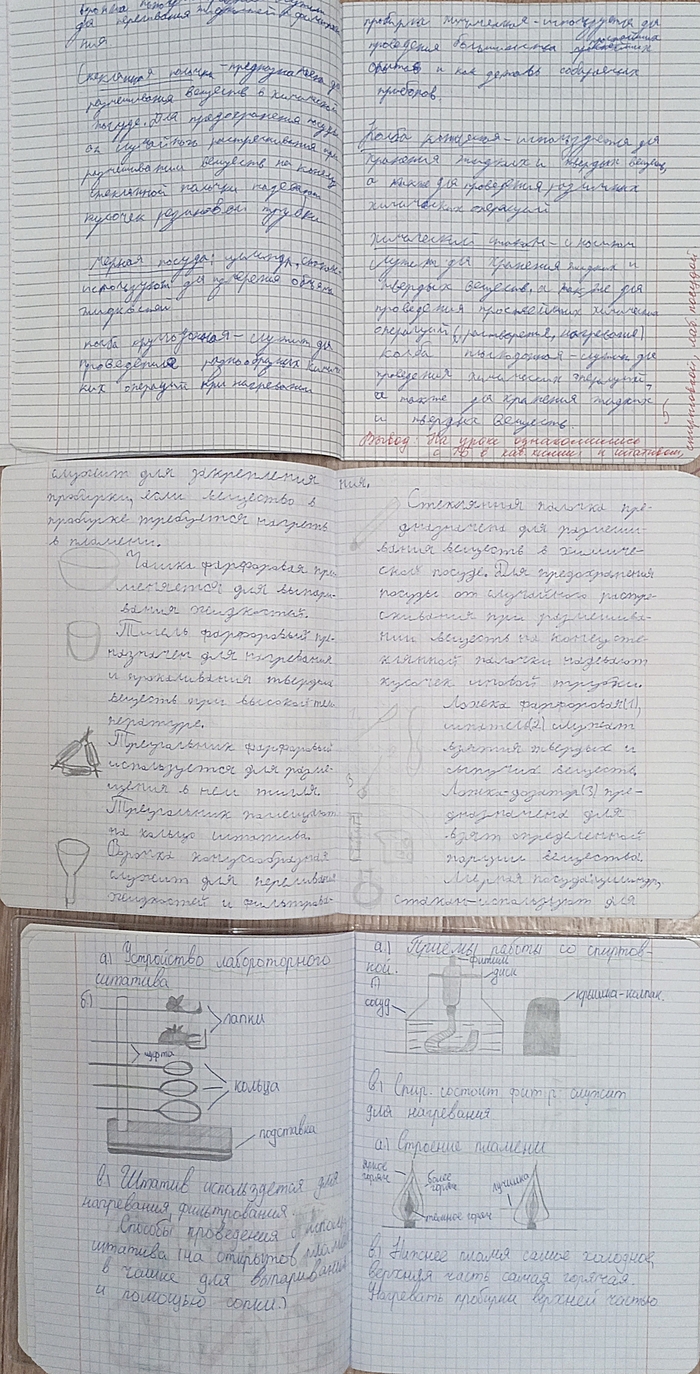 для переливания жидкостей и фильтрова-
ния
Стеклянная палочка - предназначена для
размешивания веществ в химической
посуде. Для предохранения посуды
от случайного растрескивания при
размешивании веществ на конец
стеклянной палочки надевают
кусочек резиновой трубки
мерная посуда: цилиндр, стакан-
используют для измерения объёма
жидкостей
колба круглодонная - служит для
проведения разнообразных химичес-
ких операций при нагревании
пробирка химическая - используется для
проведения большинства простейших
опытов и как деталь собираемых
приборов.
Колба коническая - используется для
хранения жидких и твердых веществ,
а также для проведения различных
химических операций
химический стакан - с носиком
служит для хранения жидких и
твердых веществ, а также для
проведения простейших химических
операций (растворения, нагревания)
Колба плоскодонная - служит для
проведения химических операций,
а также для хранения жидких
и твердых веществ.
5
Вывод: На уроке ознакомились
с ТБ в каб химии и штативом,
спиртовкой, лаб посудой
служит для закрепления
пробирки, если вещество в
пробирке требуется нагреть
в пламени.
Чашка фарфоровая при-
меняется для выпари-
вания жидкостей.
Тигель фарфоровый пре-
назначен для нагревания
и прокаливания твердых
веществ при высокой тем
пературе.
Треугальник фарфоровый
используется для разме-
щения в нем тигля.
Треугальник помещают
на кольцо штатива.
Воронка конусообразная
служит для переливания
жидкостей и фильтрова-
ния.
Стеклянная палочка пре-
дназначена для размеши-
вания веществ в химиче-
ской посуде. Для предохранения
посуды от случайного растре-
скивания при размешива-
нии веществ на конец сте-
клянной палочки надевают
кусочек трубки.
Ложка фарфоровая(1),
шпатель(2) служат
взятия твердых и
сыпучих веществ.
3
Ложка-дозатор(3) пре-
дназначена для
взят определенной
порции вещества.
Мерная посуда(цилиндр,
стакан-используют для
а) Устройство лабороторного
штатива
б)
лапки
муфта
кольца
подставка
в) Штатив используется для
нагревания, фильтрования.
Способы проведения с
штатива (на открытов пламене
в чашке для выпаривания
и помощью сопки.)
а) Приемы работы со спиртов-
кой.
фитиль
диск
сосуд
крышка-колпак.
в) Спир. состоит служит
для нагревания
а) Строение пламени
яркое
горяч
более
горяч
тёмное горяч
лучинка
в) Нижнее пламя самое холодное,
верхняя часть самая горячая.
Нагревать пробирки верхней частью